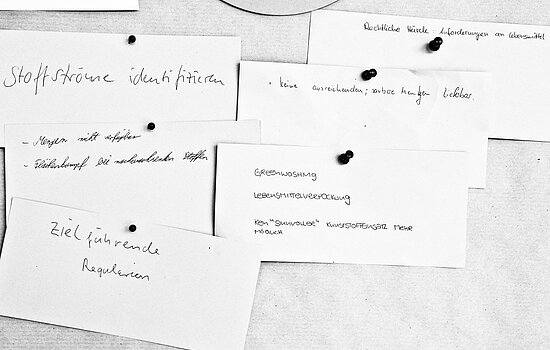 Stoffströme identifizieren
- Mengen nicht verfügbar
- Flächenkampf bei nachwachsenden Stoffen
Zielführende
Regularien
Rechtliche Hürde: Anforderungen an Lebensmittel
• keine ausreichenden, Mengen lieferbar.
GREENWASHING
LEBENSMITTELVERPACKUNG
KEIN "SINNVOLLER" KUNSTSTOFFEINSATZ MEHR
MÖGLICH